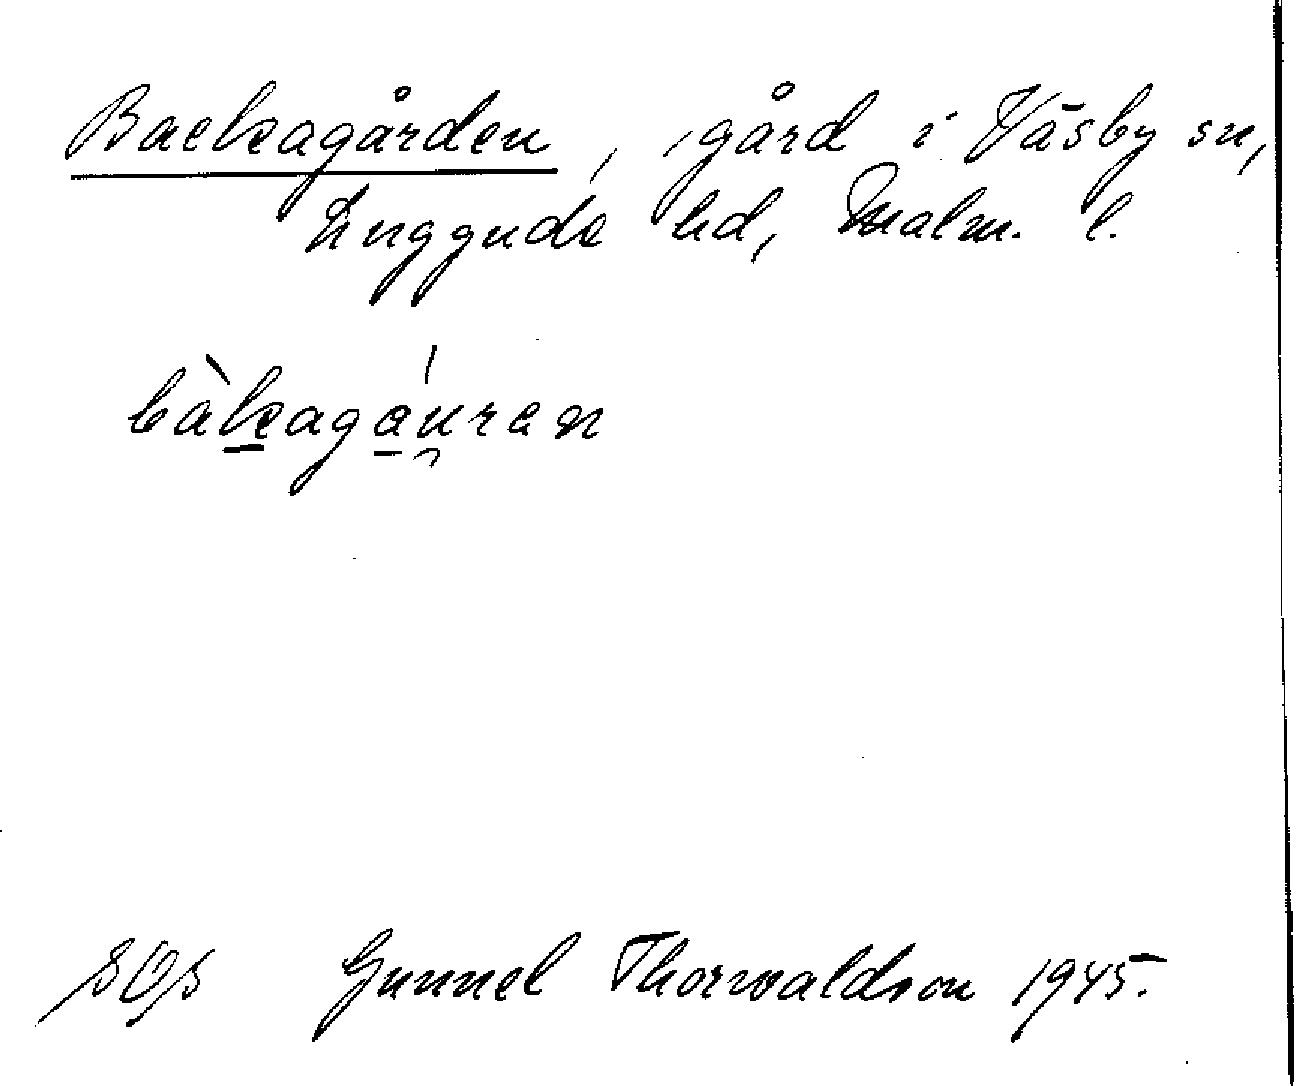 Backagården, gård i Väsby sn,
Luggude hd, Malm. l.
bàkagáu̯ran
SOS Gunnel Thorwaldson 1945.